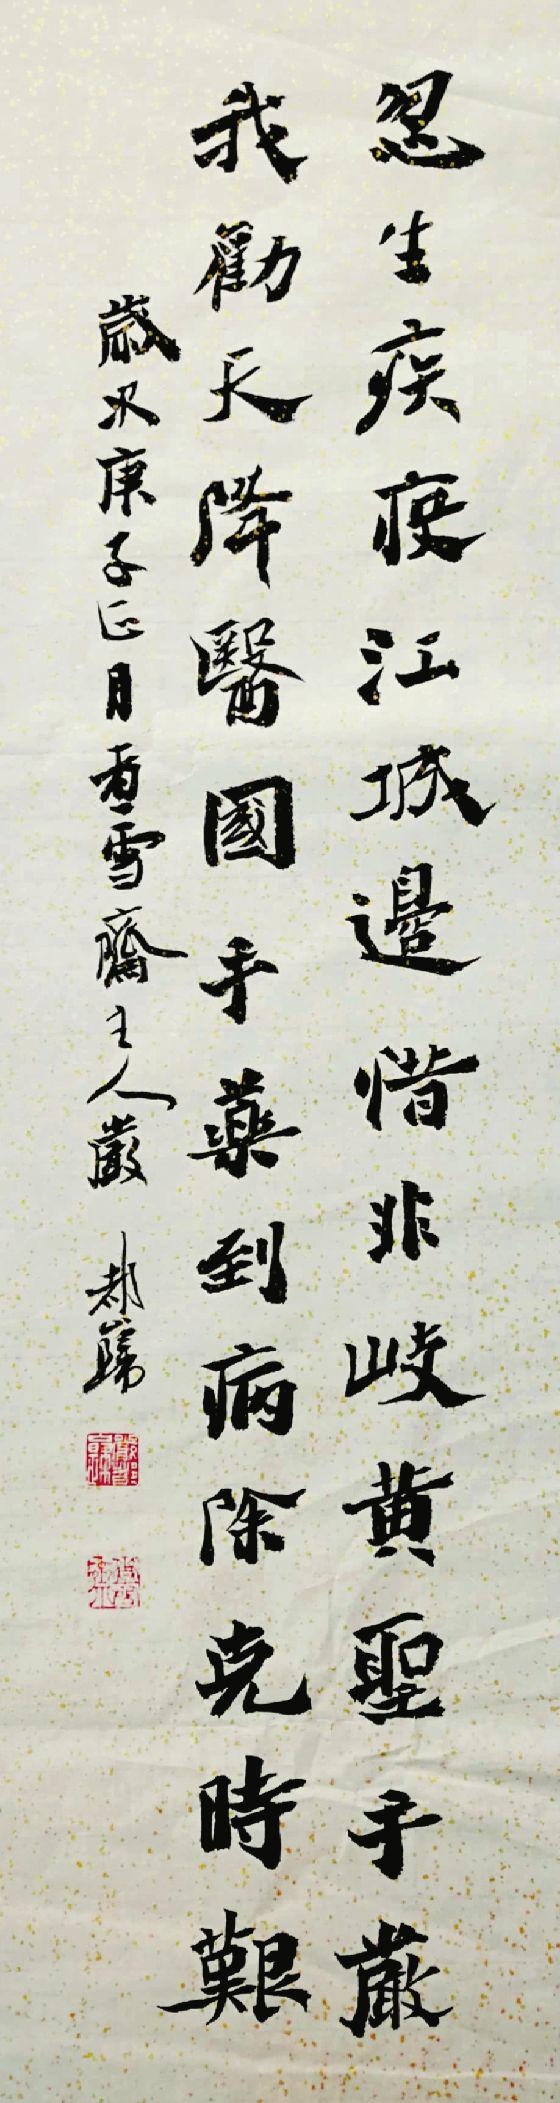 忽生疾疫江城邊惜非岐黄聖手嚴
我勸天降醫國手藥到病除克時艱
歲次庚子正月香雪齋主人嚴郝歸